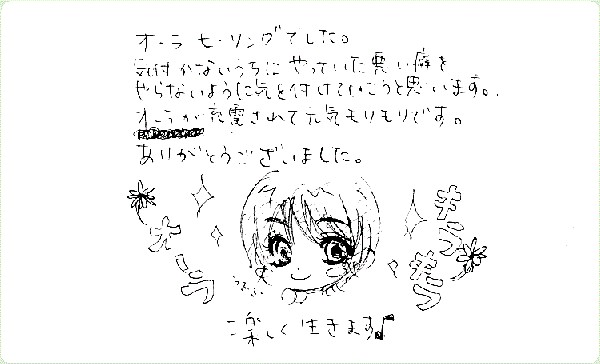 オーラ ヒーリングでした。
気付かないうちに やっていた 悪い癖を
やらないように気を付けていこうと思います。
オーラが充電されて元気もりもりです。
ありがとうございました。
オーラ
キラ
キラ
楽しく生きます♪